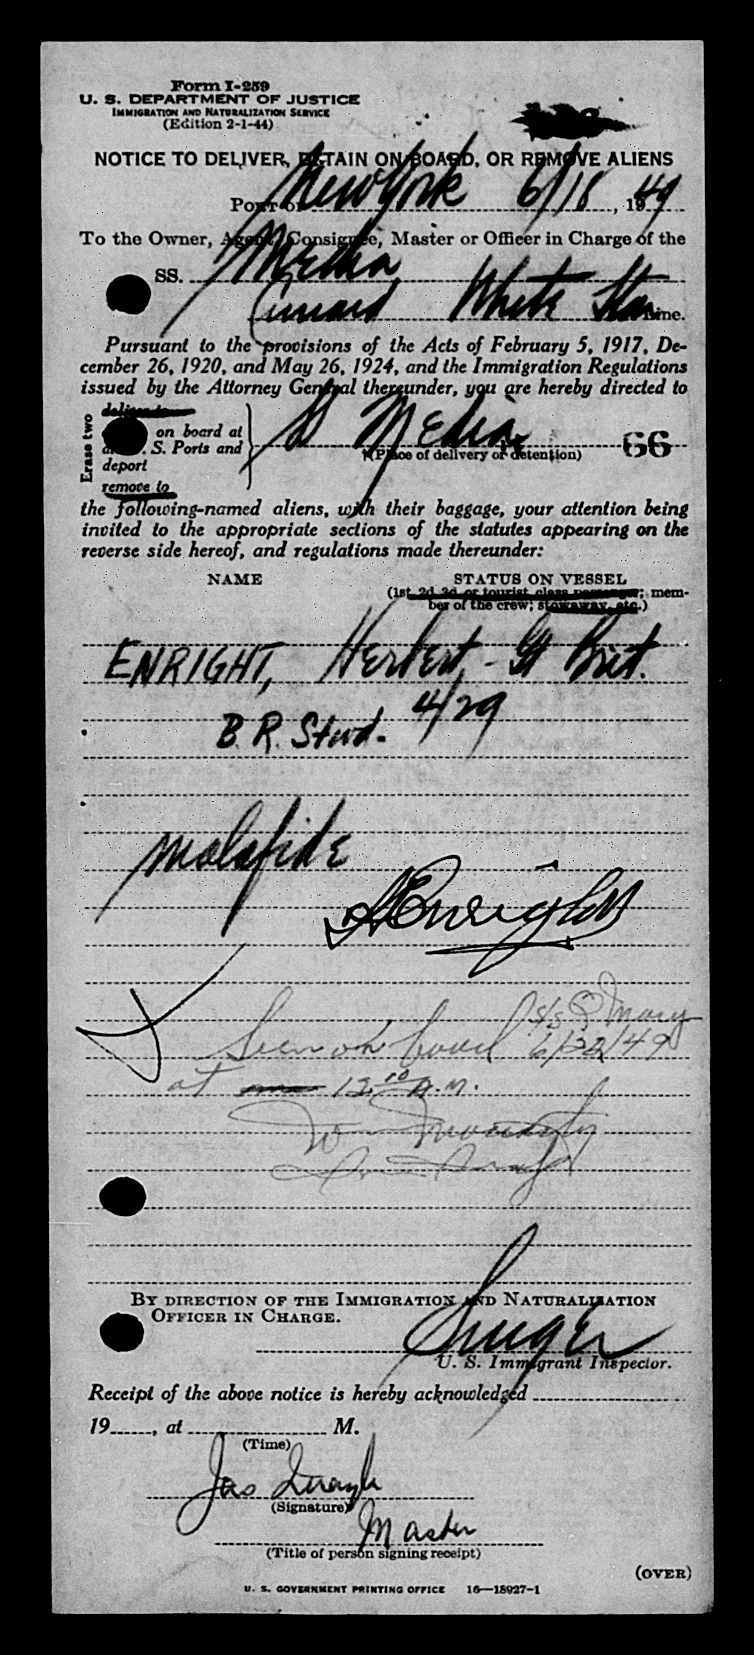 Form I-259
U. S. DEPARTMENT OF JUSTICE
IMMIGRATION AND NATURALIZATION SERVICE
(Edition 2-1-44)
NOTICE TO DELIVER, DETAIN ON BOARD, OR REMOVE ALIENS
Port of New York 6/18, 1949
To the Owner, Agent, Consignee, Master or Officer in Charge of the
SS. Media
Cunard White Star Line.
Pursuant to the provisions of the Acts of February 5, 1917, De-
cember 26, 1920, and May 26, 1924, and the Immigration Regulations
issued by the Attorney General thereunder, you are hereby directed to
Erase two
deliver to
on board at
S. Ports and
deport
remove to
Media
(Place of delivery or detention)
66
the following-named aliens, with their baggage, your attention being
invited to the appropriate sections of the statutes appearing on the
reverse side hereof, and regulations made thereunder:
NAME STATUS ON VESSEL
(1st, 2d, 3d, or tourist class passenger; mem-
ber of the crew; stowaway, etc.)
ENRIGHT, Herbert - Gt Brit.
B. R. Stwd. 4/29
malafide
HEnright
Seen on board S/S Q Mary
6/22/49
at 12 10 P.M.
BY DIRECTION OF THE IMMIGRATION AND NATURALIZATION
OFFICER IN CHARGE.
U. S. Immigrant Inspector.
Receipt of the above notice is hereby acknowledged
19, at M.
(Time)
Jas
(Signature)
Master
(Title of person signing receipt)
(OVER)
U. S. GOVERNMENT PRINTING OFFICE 16—18927-1